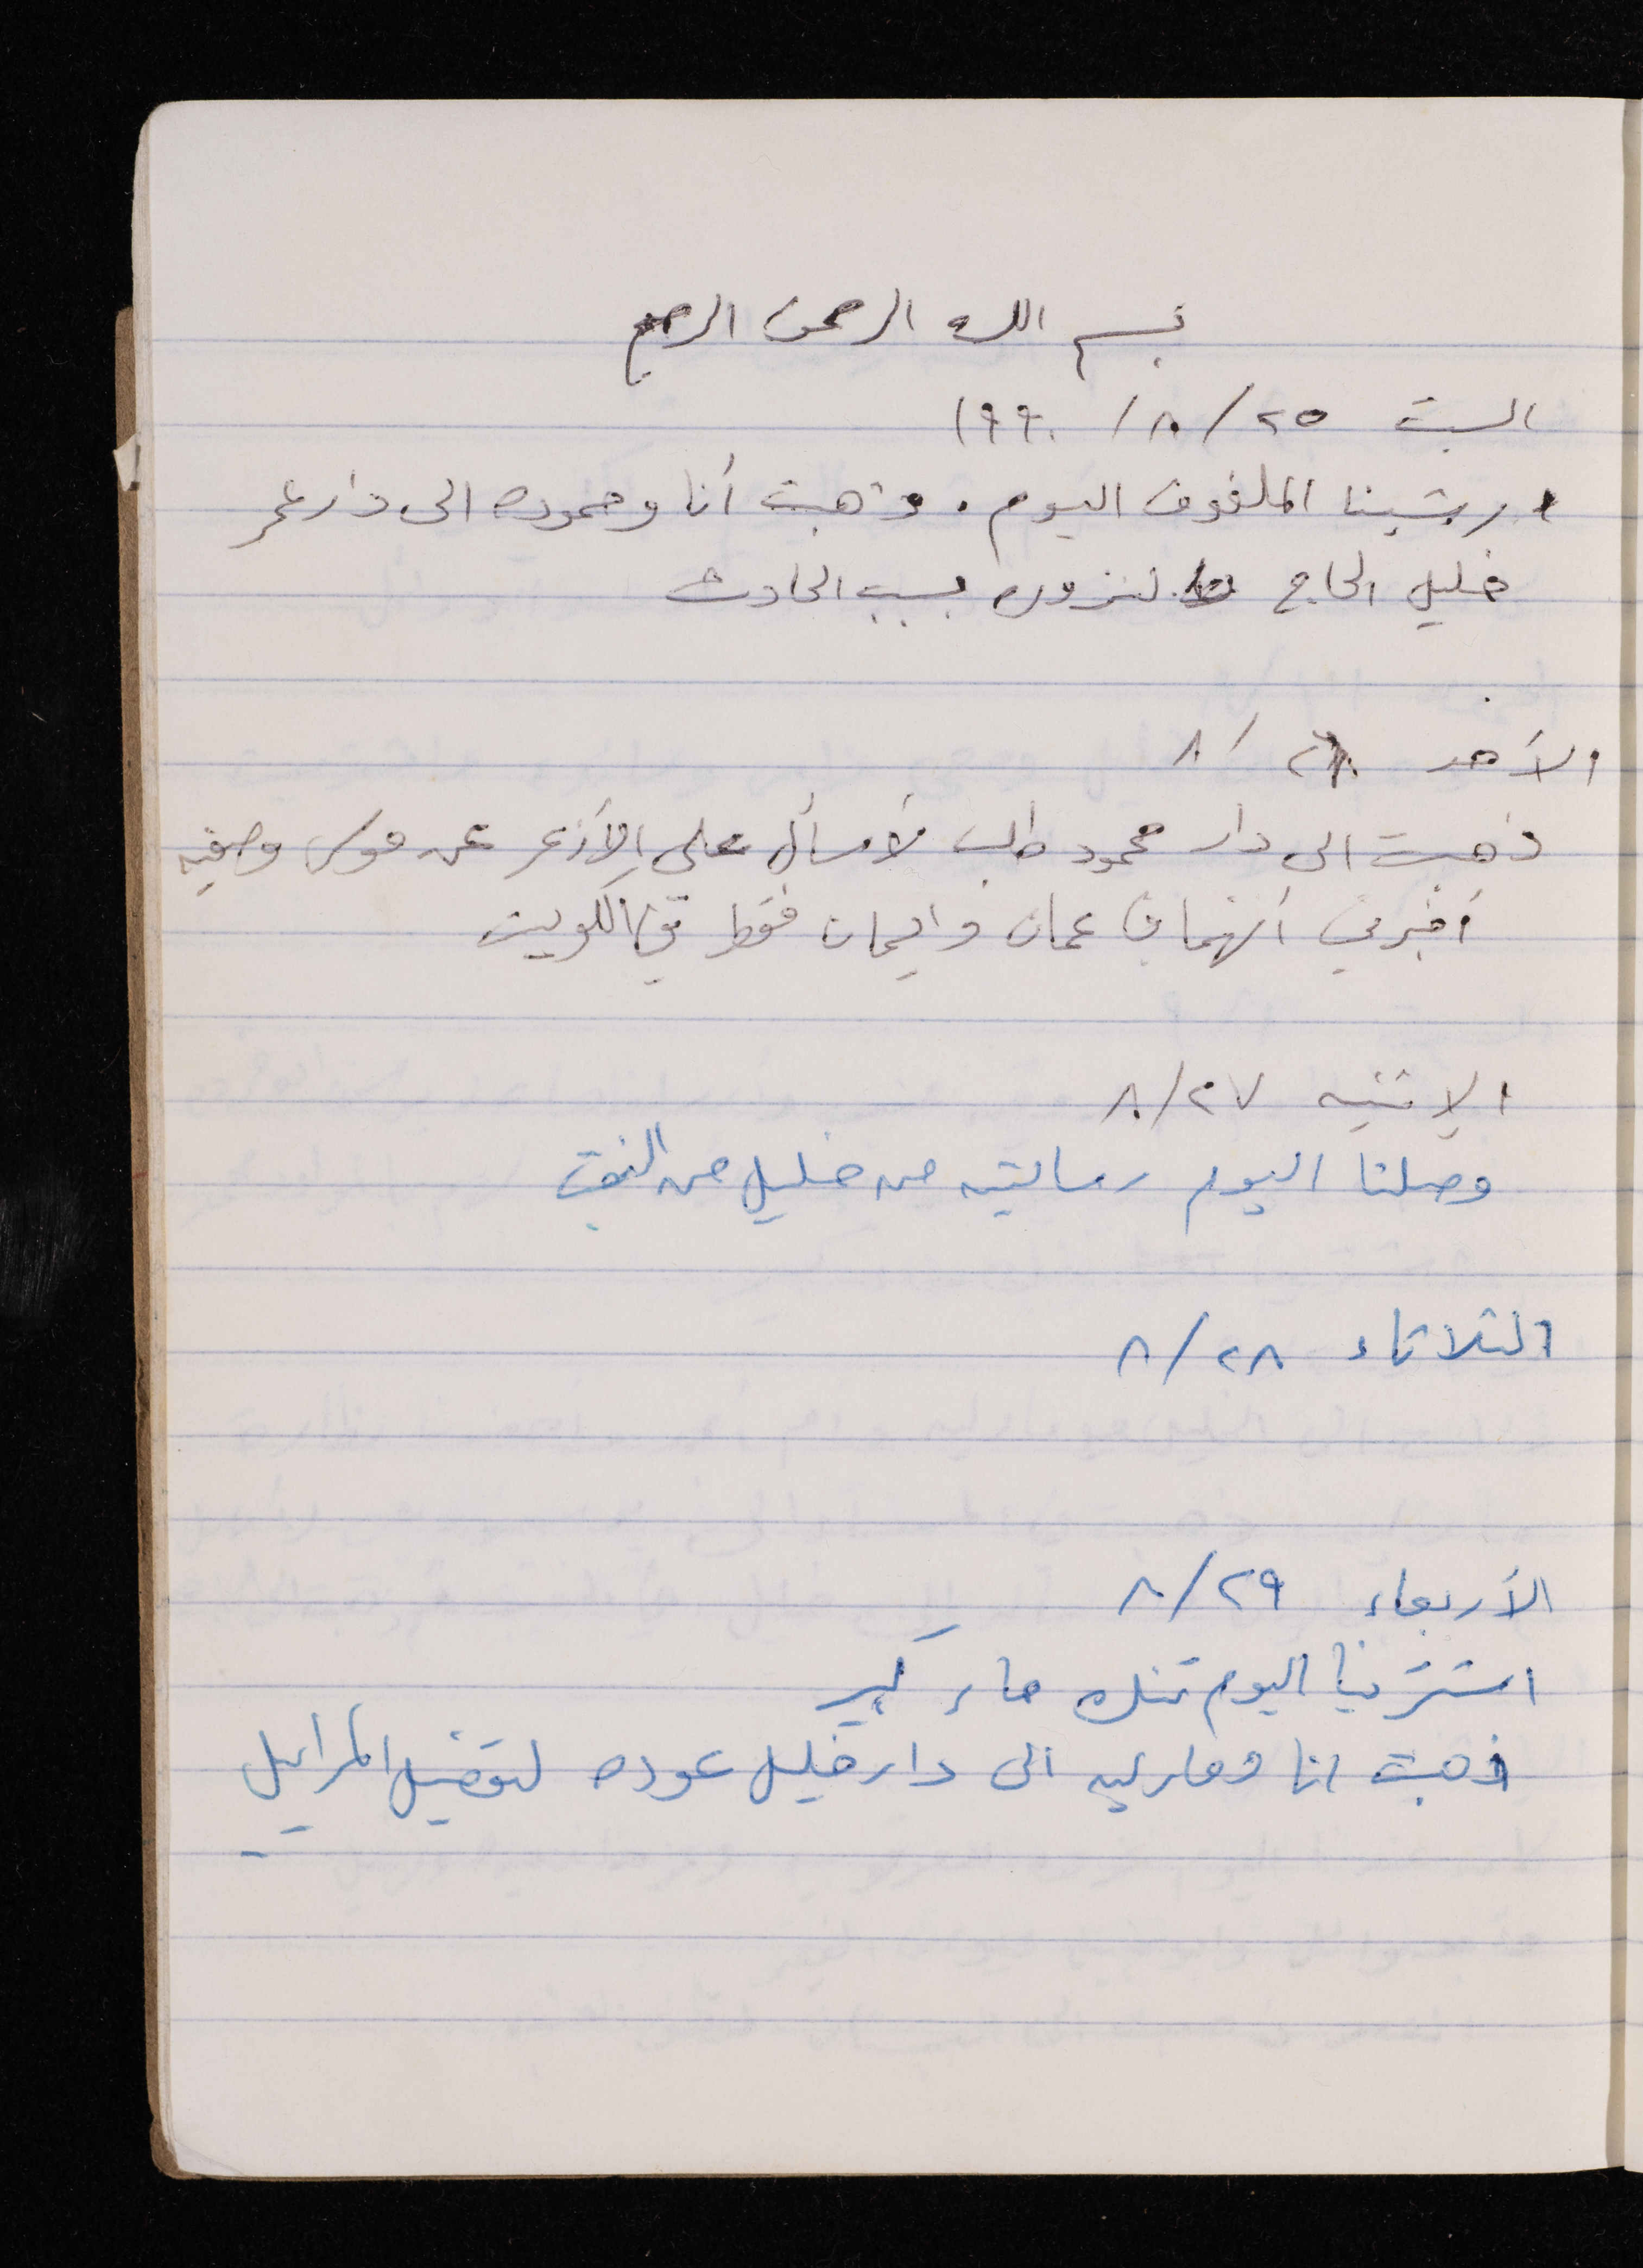 بسم الله الرحمن الرحيم
السبت ٢٥/ ٨/ ١٩٩٠
رشينا الملفوف اليوم. وذهبت أنا وحموده الى دار عمر
خليل الحاج لنزوره بسبب الحادث
الأحد ٢٦/ ٨
ذهبت الى دار محمود طالب لأسأل على الأزعر عن موسى وصفيه
أخبرني أنهما في عمان وايمان فقط في الكويت
الإثنين ٢٧/ ٨
وصلنا اليوم رسالتين من خليل من النقب
الثلاثاء ٢٨/ ٨
الأربعاء ٢٩/ ٨
اشترينا اليوم تنك ماء كبير
ذهبت انا وماريه الى دار خليل عوده لتفصيل المراييل